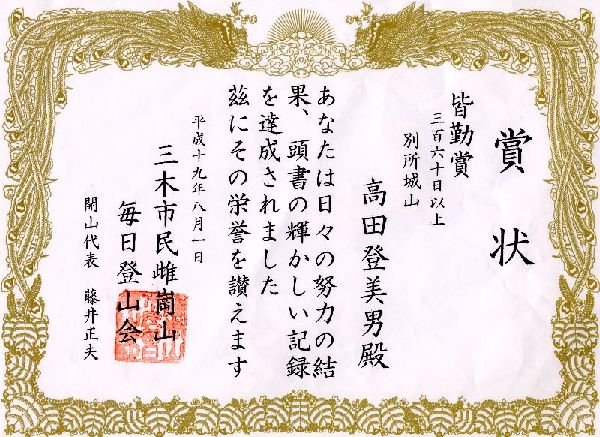 賞状
皆勤賞
三百六十日以上
別所城山
高田登美男殿
あなたは日々の努力の結
果、頭書の輝かしい記録
を達成されました
茲にその栄誉を讃えます
平成十九年八月一日
三木市民雌崗山
毎日登山会
開山代表 藤井正夫